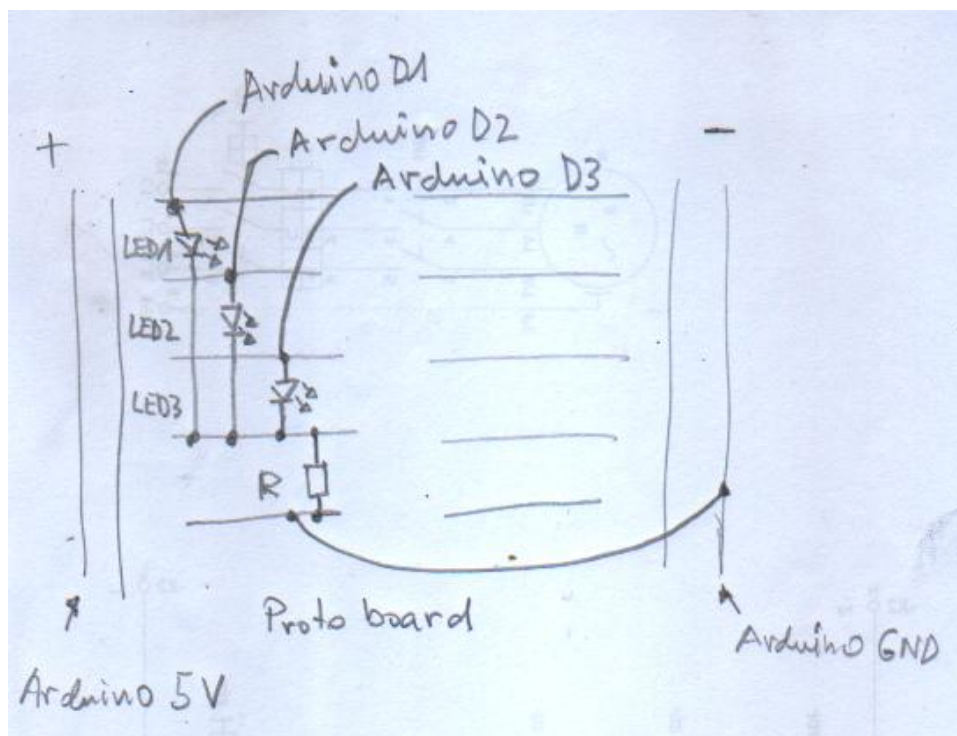 Arduino D1
+
Arduino D2
-
Arduino D3
LED1
LED2
LED3
R
Proto board
Arduino GND
Arduino 5V